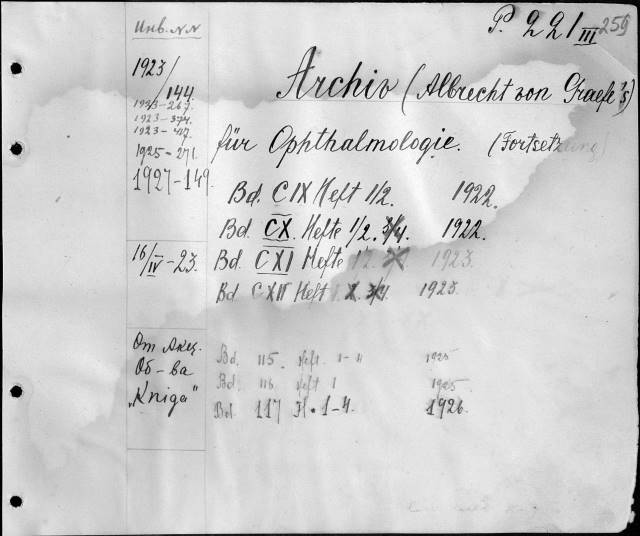 Инв. N.N
P. 221 III 259
1923/144
Archiv (Albrecht von Graefe's)
1923-267.
1923-374.
1923-417.
für Ophthalmologie. (Fortsetzung)
1925-271.
1927-149.
Bd. CIX Heft 1/2. 1922.
Bd. CX. Hefte 1/2. 3/4. 1922.
16/IV-23. Bd. CXI Hefte 1/2. 1923.
Bd. CXII Heft 3/4. 1923.
От Акц.
Bd. 115. Heft. 1-4 1925
Об-ва
Bd. 116. Heft 1 1925.
"Kniga"
Bd. 117 H. 1-4. 1926.